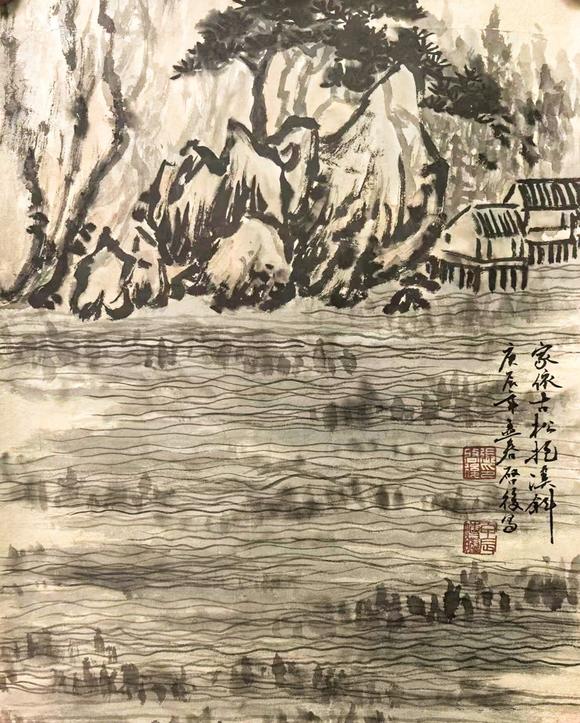 家依古松抱溪斜
庚辰年立春啓後写